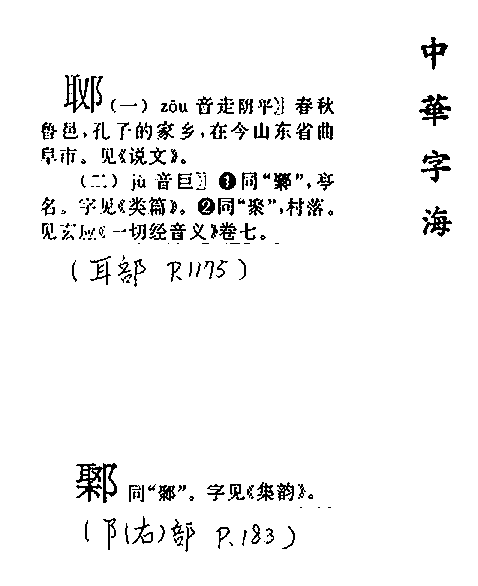 中華字海
郰（一）zōu 音走阴平〗春秋
鲁邑，孔子的家乡，在今山东省曲
阜市。见《说文》。
（二）jù 音巨〗❶同“鄹”，亭
名。字见《类篇》。❷同“聚”，村落。
见玄应《一切经音义》卷七。
（耳部 P.1175）
同“鄹”。字见《集韵》。
（阝（右）部 P.183）